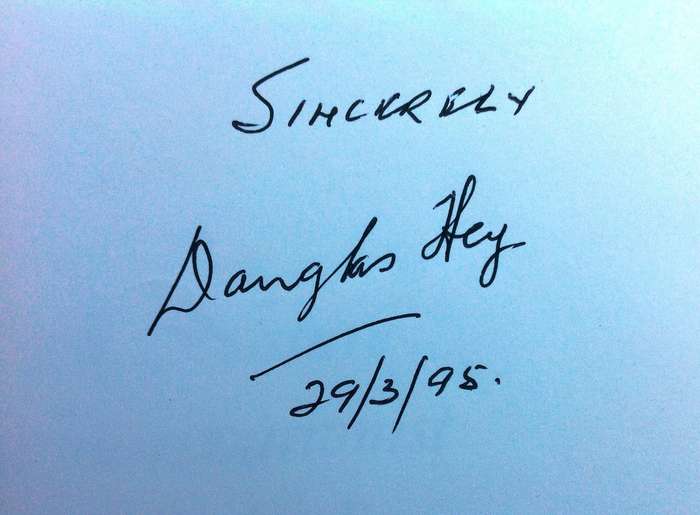 SINCERELY
Douglas Hey
29/3/95.